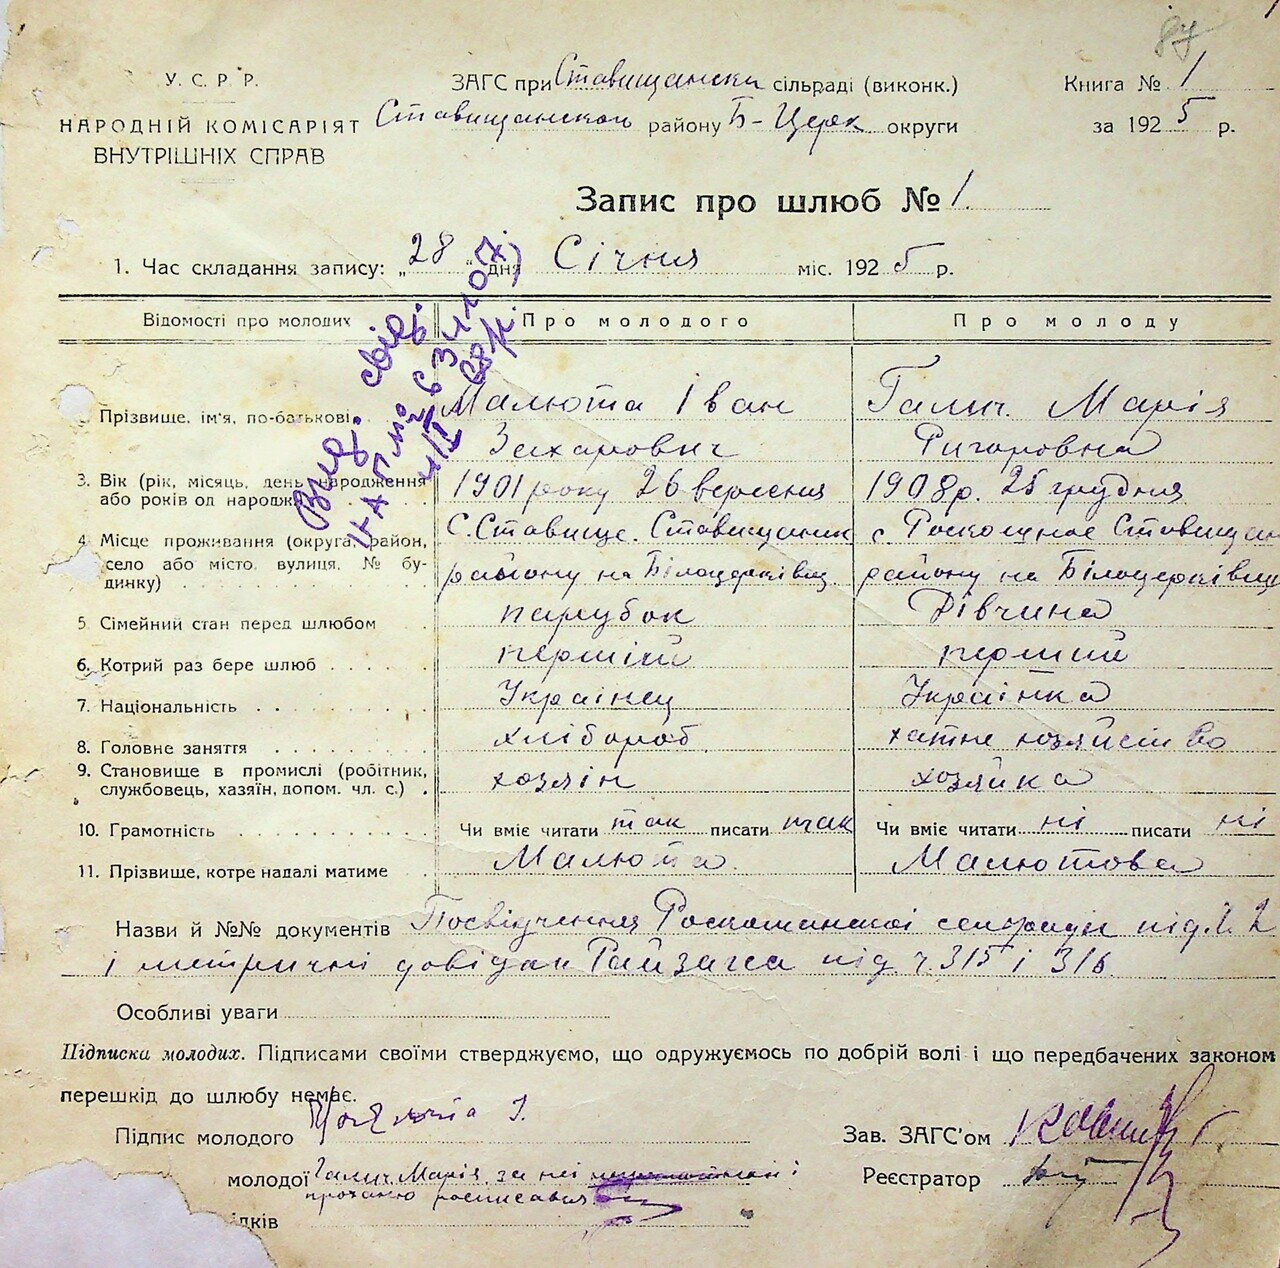 У. С. Р. Р.
НАРОДНІЙ КОМІСАРІЯТ
ВНУТРІШНІХ СПРАВ
ЗАГС при Ставищански сільраді (виконк.)
Ставищанского району Б-Церк округи
Книга № 1
за 1925 р.
Запис про шлюб № 1.
1. Час складання запису: „28" дня Січня міс. 1925 р.
Відомості про молодих Про молодого Про молоду
Прізвище, ім'я, по-батькові Малюта Іван Захарович
Галич. Марія Ригоровна
3. Вік (рік, місяць, день народження або років од народж. 1901 року 26 вересння
1908 р. 25 грудния
4. Місце проживання (округа, район, село або місто, вулиця, № будинку) С. Ставище. Ставищаник району на Білоцерківщ.
с. Роскошное Ставищан району на Білоцерківщ
5. Сімейний стан перед шлюбом парубок Дівчина
6. Котрий раз бере шлюб перший перший
7. Національність Украінец Украінка
8. Головне заняття хлібороб хатне хозяйство
9. Становище в промислі (робітник, службовець, хазяїн, допом. чл. с.) хозяін хозяйка
10. Грамотність Чи вміє читати так писати так Чи вміє читати ні писати ні
11. Прізвище, котре надалі матиме Малюта. Малютова
Назви й №№ документів Посвідчення Роскошанскоі сельради під ч. 2
і метричні довідки Райзагса під ч. 315 і 316
Особливі уваги
Підписка молодих. Підписами своїми стверджуємо, що одружуємось по добрій волі і що передбачених законом
перешкід до шлюбу немає.
Підпис молодого Малюта І.
Зав. ЗАГС'ом
молодої Галич Марія за неі
проханю расписався
Реєстратор
ідків
Вид. свід.